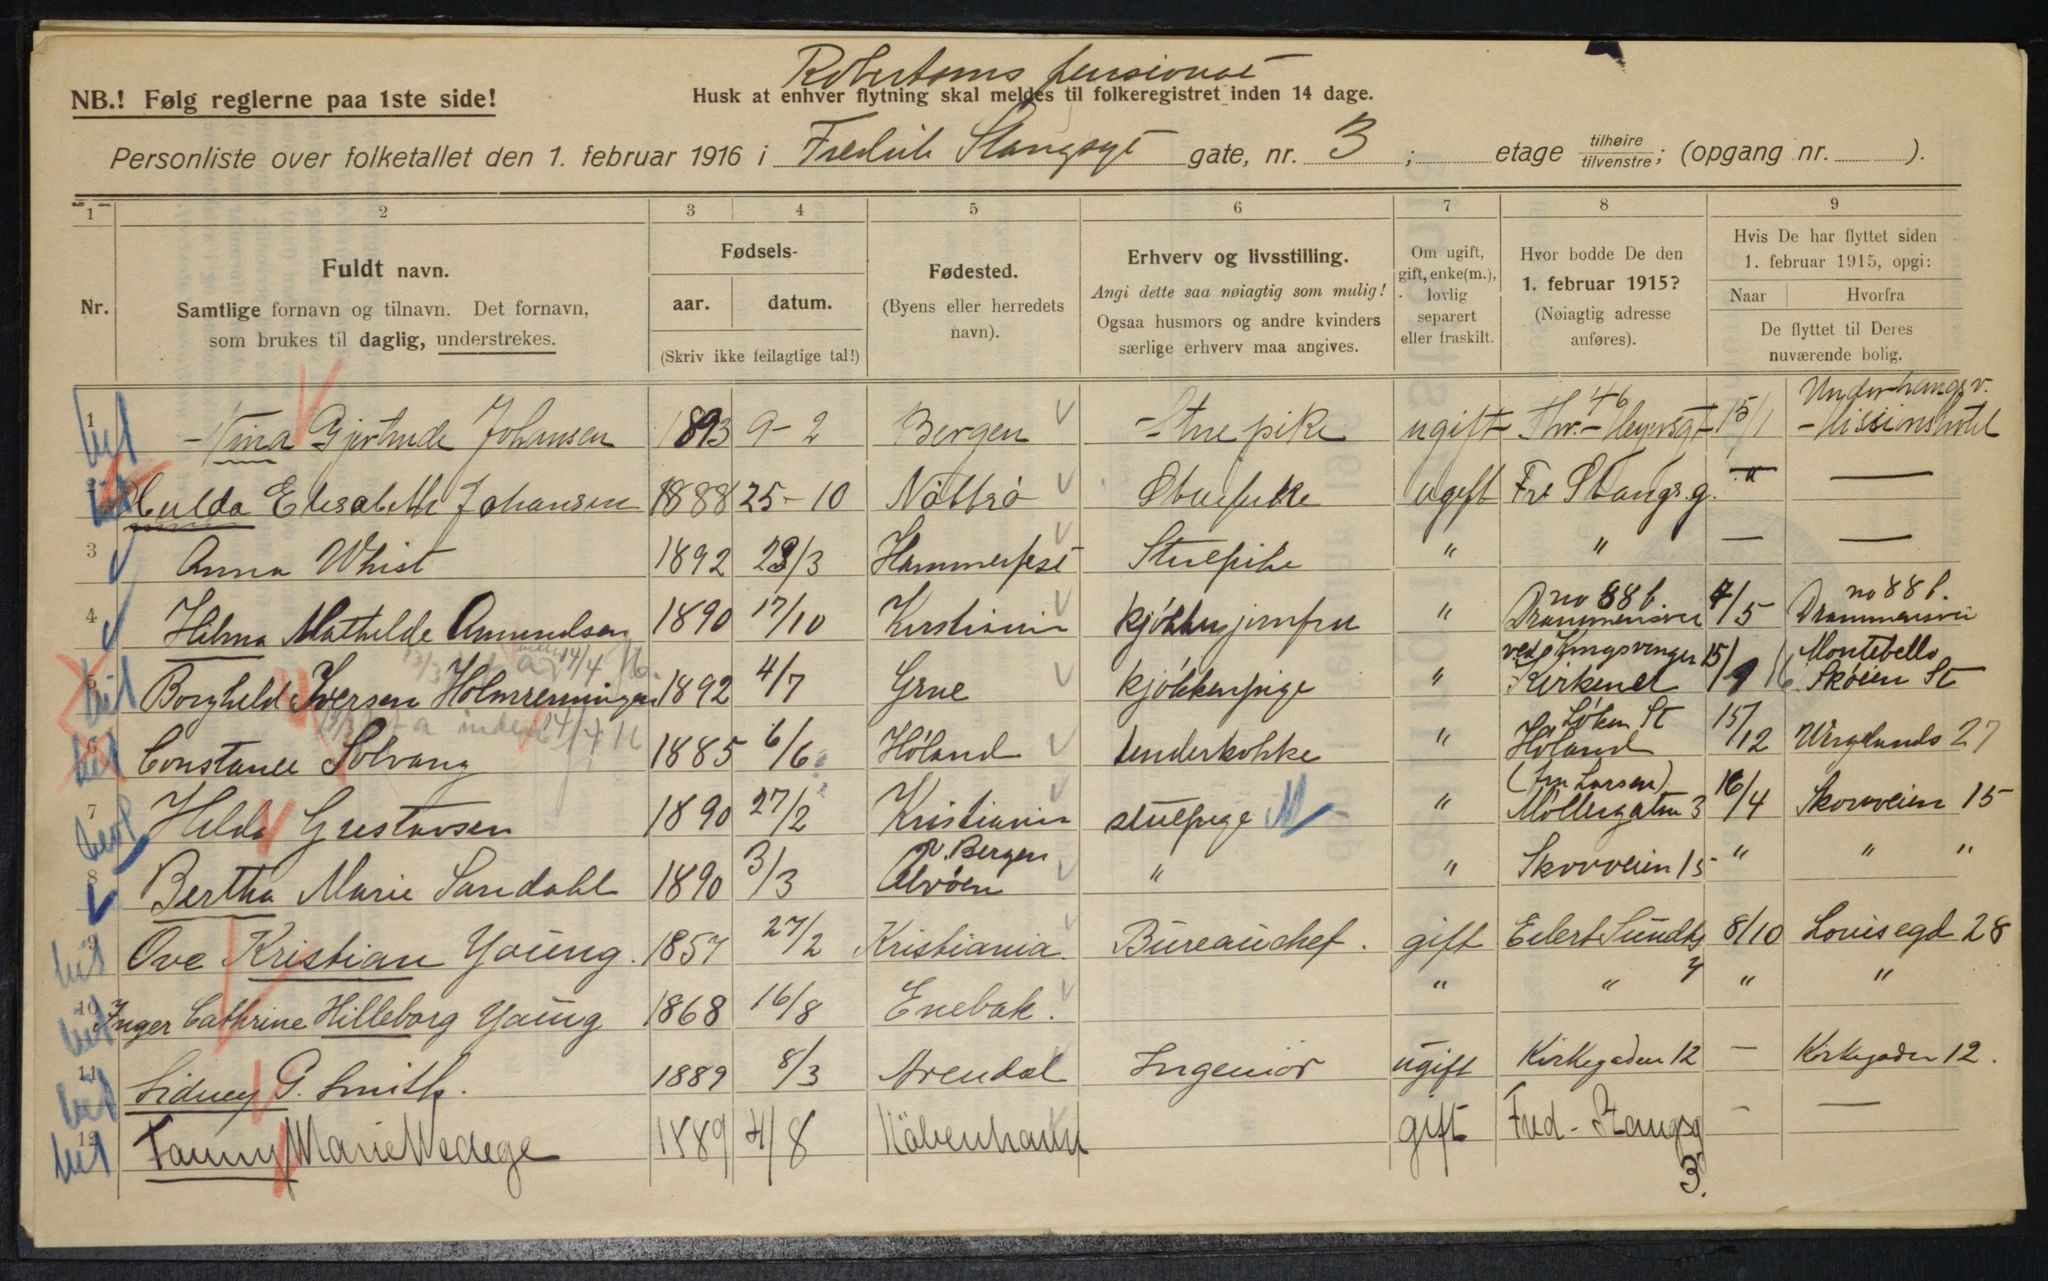 Robertsons pensionat
NB.! Følg reglerne paa 1ste side!
Husk at enhver flytning skal meldes til folkeregistret inden 14 dage.
Personliste over folketallet den 1. februar 1916 i Fredrik Stangsgt gate, nr. 3 ; etage tilhøire tilvenstre; (opgang nr. ).
1 2 3 4 5 6 7 8 9
Nr.
Fuldt navn.
Samtlige fornavn og tilnavn. Det fornavn,
som brukes til daglig, understrekes.
Fødsels-
aar. datum.
(Skriv ikke feilagtige tal!)
Fødested.
(Byens eller herredets
navn).
Erhverv og livsstilling.
Angi dette saa nøiagtig som mulig!
Ogsaa husmors og andre kvinders
særlige erhverv maa angives.
Om ugift,
gift, enke(m.),
lovlig
separert
eller fraskilt.
Hvor bodde De den
1. februar 1915?
(Nøiagtig adresse
anføres).
Hvis De har flyttet siden
1. februar 1915, opgi:
Naar Hvorfra
De flyttet til Deres
nuværende bolig.
1 Nina Gjertrude Johnsen 1893 9-2 Bergen Stuepike ugift Thv. Meyersgt 46 15/1 Missionshotel
2 Hulda Elisabeth Johansen 1888 25-10 Nøtterø Stuepike ugift Fr Stangs.g. " —
3 Anna Whist 1892 23/3 Hammerfest Stuepike " " — —
4 Hilma Mathilde Amundsen 1890 17/10 Kristiania kjøkkenjomfru " no 88 b Drammensvei 4/5 no 88 b. Drammensvei
5 Borghild Iversen Holmrenningen 1892 4/7 Grue kjøkkenpige " ved Kongsvinger Kirkenet 15/9 16 Montebello Skøien St
6 Constance Solvang 1885 6/6 Høland underkokke " Løken St Høland 15/12 Wergelands 27
7 Hilda Gustavsen 1890 27/2 Kristiania stuepige " (fru Larsen) Møllergaten 3 16/4 Skovveien 15
8 Bertha Marie Sandahl 1890 3/3 Alvøen p. Bergen " " Skovveien 15 " " "
9 Ove Kristian Young. 1857 27/2 Kristiania. Bureauchef. gift Eilert Sundtsg 8/10 Louisegd 28
10 Inger Cathrine Hilleborg Young 1868 16/8 Enebak. " " " "
11 Sidney G. Smith. 1889 8/3 Arendal Ingeniør ugift Kirkegaden 12 — Kirkegaden 12.
12 Fanny Marie Wedege 1889 4/8 København gift Fred-Stangsg 3. — —